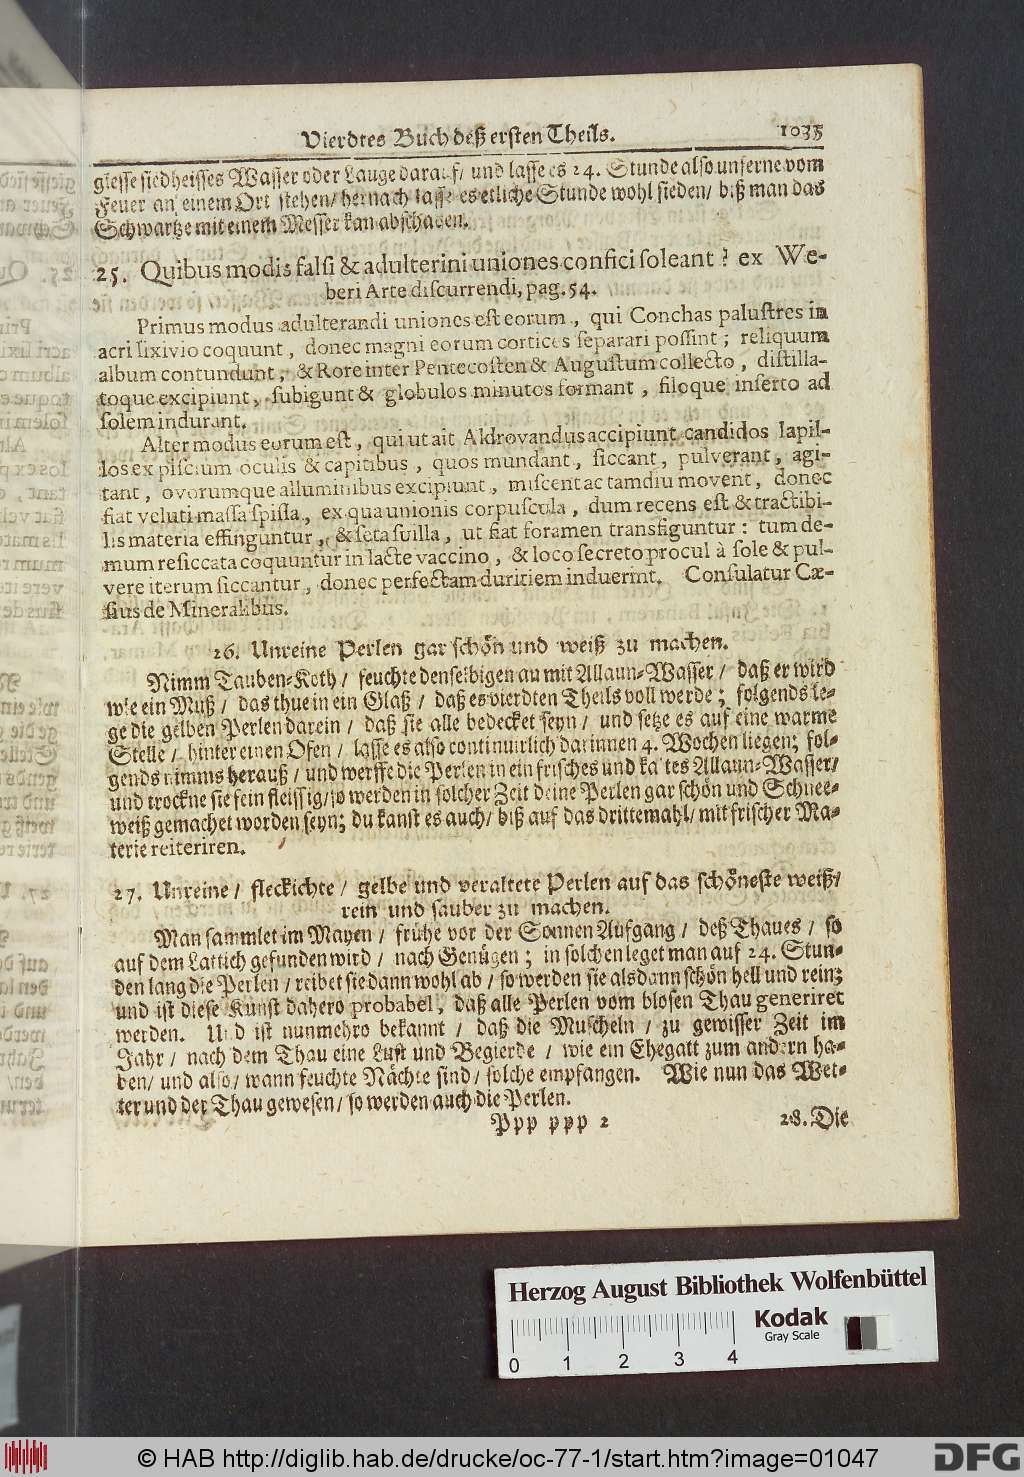 Vierdtes Buch deß ersten Theils. 1035
giesse siedheisses Wasser oder Lauge darauf/ und lasse es 24. Stunde also unferne vom
Feuer an einem Ort stehen/ hernach lasse es etliche Stunde wohl sieden/ biß man das
Schwartze mit einem Messer kan abschaben.
25. Quibus modis falsi & adulterini uniones confici soleant? ex We-
beri Arte discurrendi, pag. 54.
Primus modus adulterandi uniones est eorum, qui Conchas palustres in
acri lixivio coquunt, donec magni eorum cortices separari possint; reliquum
album contundunt; & Rore inter Pentecosten & Augustum collecto, distilla-
toque excipiunt, subigunt & globulos minutos formant, filoque inserto ad
solem indurant.
Alter modus eorum est, qui ut ait Aldrovandus accipiunt candidos lapil-
los ex piscium oculis & capitibus, quos mundant, siccant, pulverant, agi-
tant, ovorumque alluminibus excipiunt, miscent ac tamdiu movent, donec
fiat veluti massa spissa, ex qua unionis corpuscula, dum recens est & tractibi-
lis materia effinguntur, & seta suilla, ut fiat foramen transfiguntur: tum de-
mum resiccata coquuntur in lacte vaccino, & loco secreto procul à sole & pul-
vere iterum siccantur, donec perfectam duritiem induerint. Consulatur Cæ-
sius de Mineralibus.
26. Unreine Perlen gar schön und weiß zu machen.
Nimm Tauben-Koth/ feuchte denselbigen an mit Allaun-Wasser/ daß er wird
wie ein Muß/ das thue in ein Glaß/ daß es vierdten Theils voll werde; folgends le-
ge die gelben Perlen darein/ daß sie alle bedecket seyn/ und setze es auf eine warme
Stelle/ hinter einen Ofen/ lasse es also continuirlich darinnen 4. Wochen liegen; fol-
gends nimms herauß/ und werffe die Perlen in ein frisches und kaltes Allaun-Wasser/
und trockne sie fein fleissig/ so werden in solcher Zeit deine Perlen gar schön und Schnee-
weiß gemachet worden seyn; du kanst es auch/ biß auf das drittemahl/ mit frischer Ma-
terie reiteriren.
27. Unreine/ fleckichte/ gelbe und veraltete Perlen auf das schöneste weiß/
rein und sauber zu machen.
Man sammlet im Mayen/ frühe vor der Sonnen Aufgang/ deß Thaues/ so
auf dem Lattich gefunden wird/ nach Genügen; in solchen leget man auf 24. Stun-
den lang die Perlen/ reibet sie dann wohl ab/ so werden sie alsdann schön hell und rein;
und ist diese Kunst dahero probabel, daß alle Perlen vom blosen Thau generiret
werden. Und ist nunmehro bekannt/ daß die Muscheln/ zu gewisser Zeit im
Jahr/ nach dem Thau eine Lust und Begierde/ wie ein Ehegatt zum andern ha-
ben/ und also/ wann feuchte Nächte sind/ solche empfangen. Wie nun das Wet-
ter und der Thau gewesen/ so werden auch die Perlen.
Ppp ppp 2 28. Die
Herzog August Bibliothek Wolfenbüttel
Kodak
Gray Scale
0 1 2 3 4
© HAB http://diglib.hab.de/drucke/oc-77-1/start.htm?image=01047
DFG